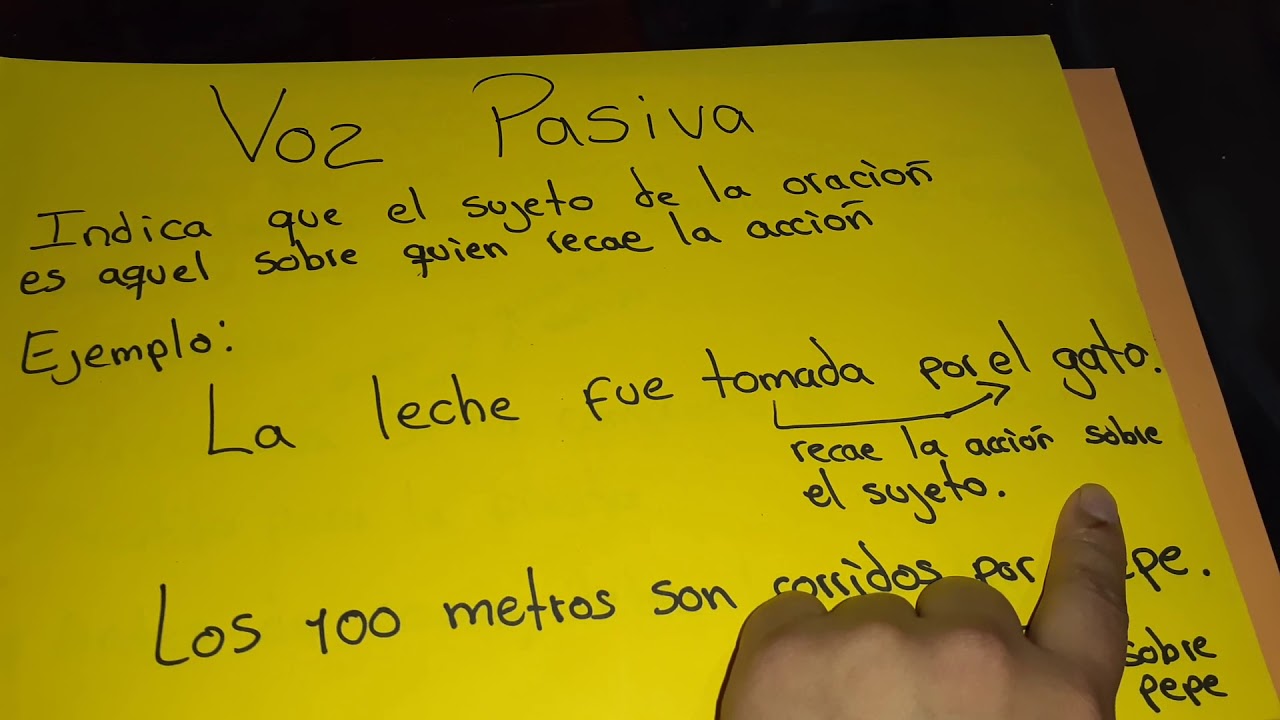 Voz Pasiva
Indica que el sujeto de la oración
es aquel sobre quien recae la acción
Ejemplo:
La leche fue tomada por el gato.
recae la acción sobre
el sujeto.
Los 100 metros son corridos por
sobre
pepe